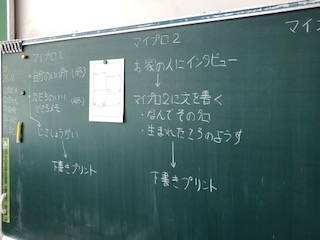 マイプロ1
自分のいい所(3コ)
友だちのいい
ところメモ
じこしょうかい
下書きプリント
マイプロ2
お家の人にインタビュー
マイプロ2に文を書く
・なんでその名
・生まれたころのようす
下書きプリント
マイ